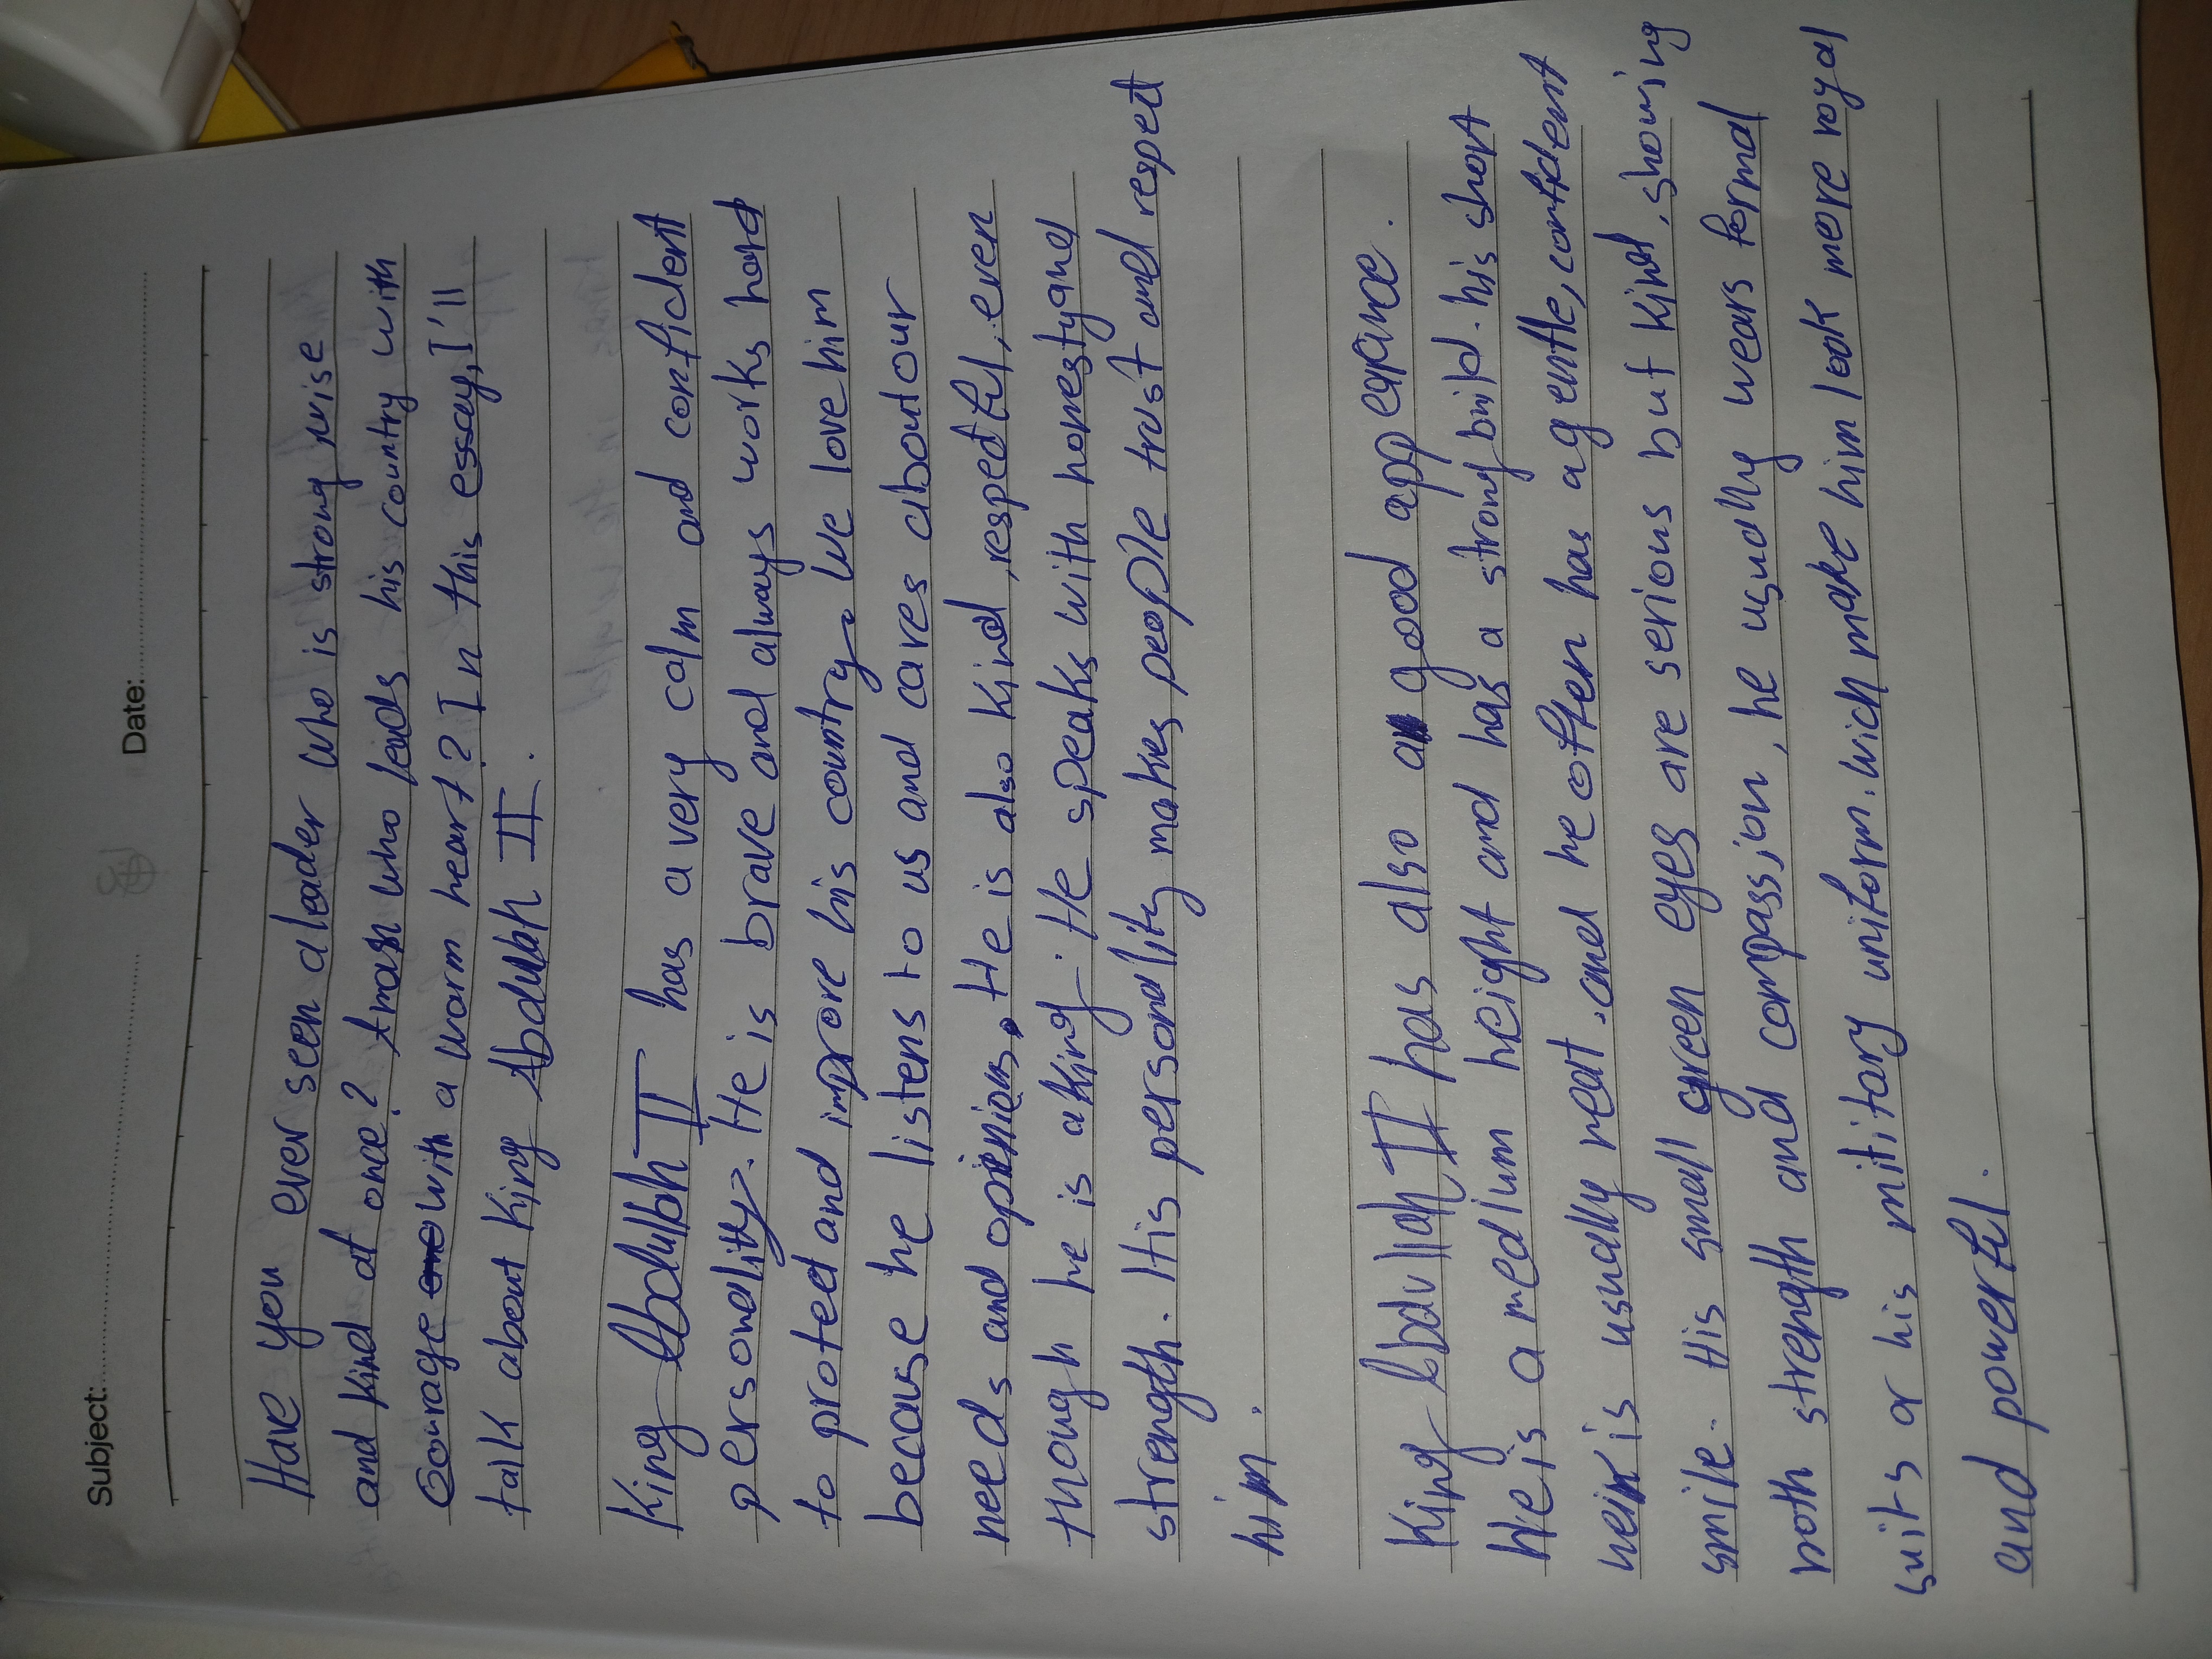 Subject:.................... Date:....................
Have you ever seen a leader who is strong, wise
and kind at once? A man who leads his country with
Courage with a warm heart? In this essay, I'll
talk about King Abdullah II.
King Abdullah II has a very calm and confident
personality. He is brave and always works hard
to protect and improve his country. We love him
because he listens to us and cares about our
needs and opinions. He is also kind, respectful, even
though he is a king. He speaks with honesty and
strength. His personality makes people trust and respect
him.
King Abdullah II has also a good apperance.
He is a medium height and has a strong build. his short
heir is usually neat. and he often has a gentle, confident
smile. His small green eyes are serious but kind, showing
both strength and compassion, he usually wears formal
suits or his mititary uniform. wich make him look more royal
and powerful.